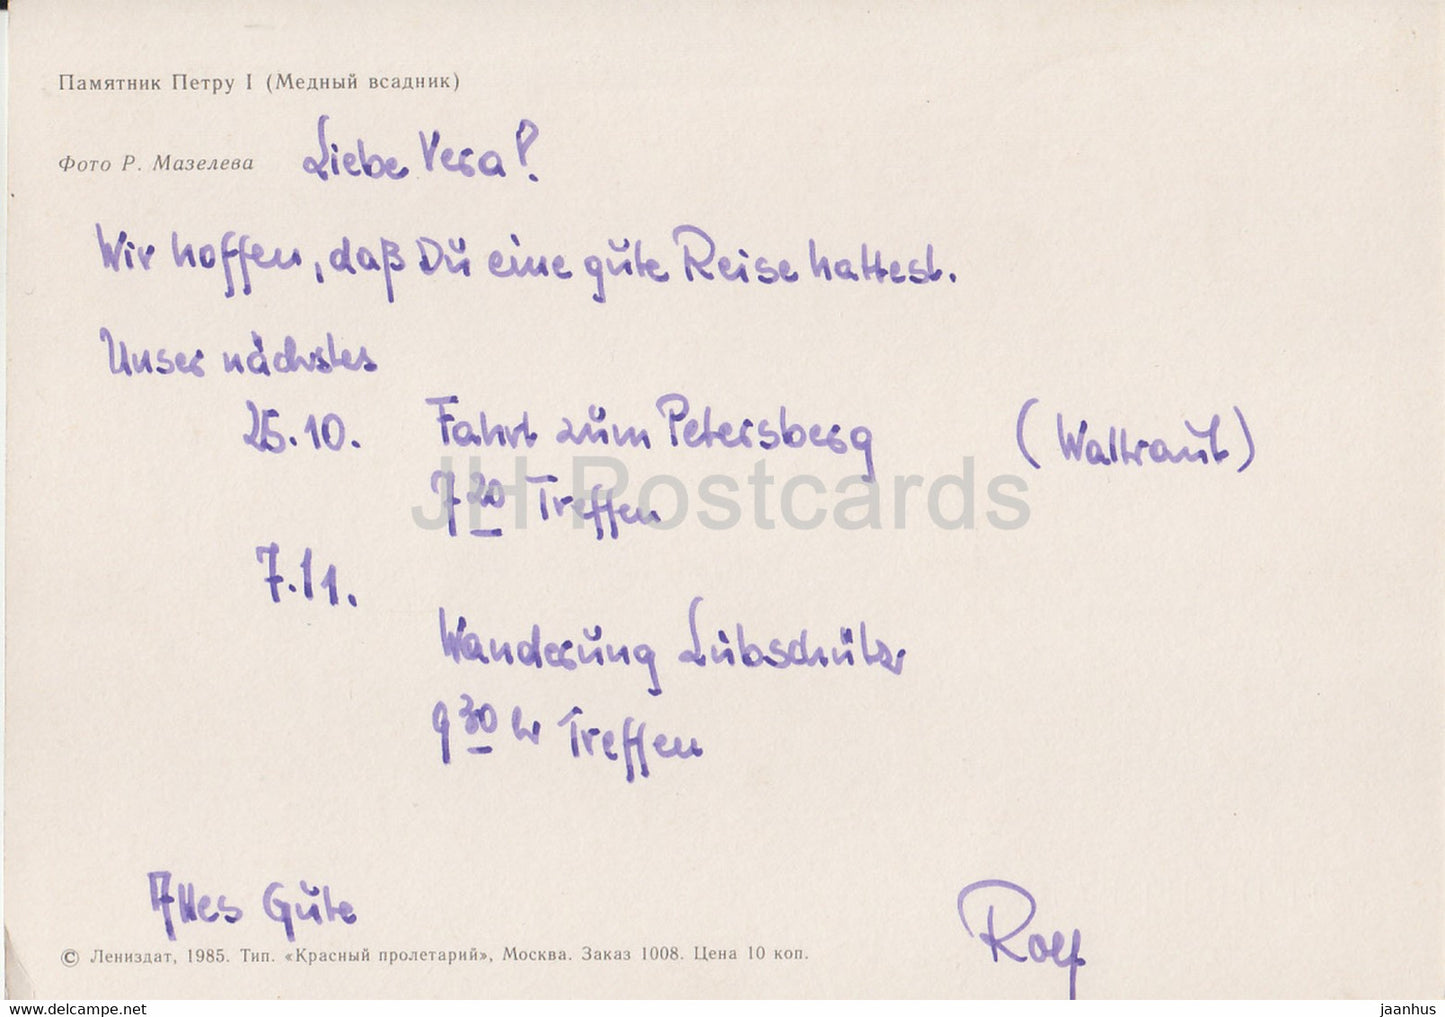 Памятник Петру I (Медный всадник)
Фото Р. Мазелева
Liebe Vera!
Wir hoffen, daß Du eine gute Reise hattest.
Unser nächstes
25.10. Fahrt zum Petersberg (Waltraut)
7 20 Treffen
7.11.
Wanderung Lübschütz
9 30 Treffen
Alles Gute
Rolf
© Лениздат, 1985. Тип. «Красный пролетарий», Москва. Заказ 1008. Цена 10 коп.
JH Postcards
https://www.delcampe.net
jaanhus